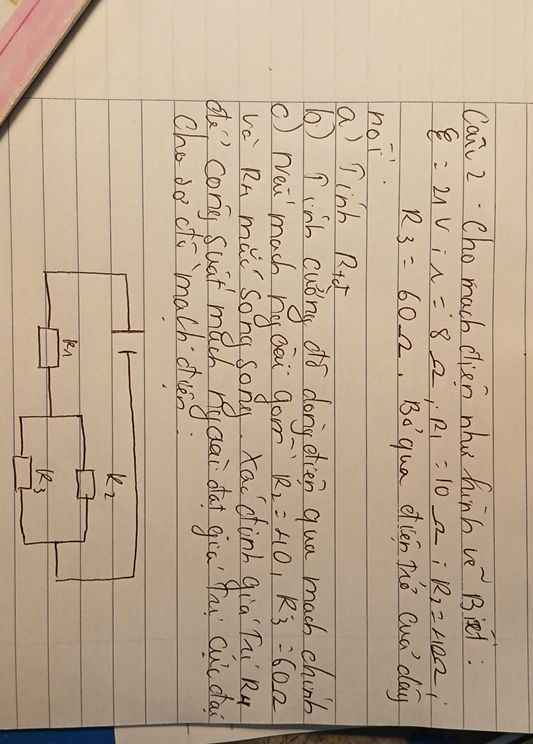 Câu 2. Cho mạch điện như hình vẽ Biết:
ξ = 21V; r = 8 Ω; R1 = 10 Ω; R2 = 40Ω;
R3 = 60Ω. Bỏ qua điện trở của dây
nối.
a) Tính Rtđ
b) Tính cường độ dòng điện qua mạch chính
c) nếu mạch ngoài gồm R2 = 40, R3 = 60Ω
và R4 mắc song song. Xác định giá trị R4
để công suất mạch ngoài đạt giá trị cực đại
Cho sơ đồ mạch điện:
R1
R2
R3